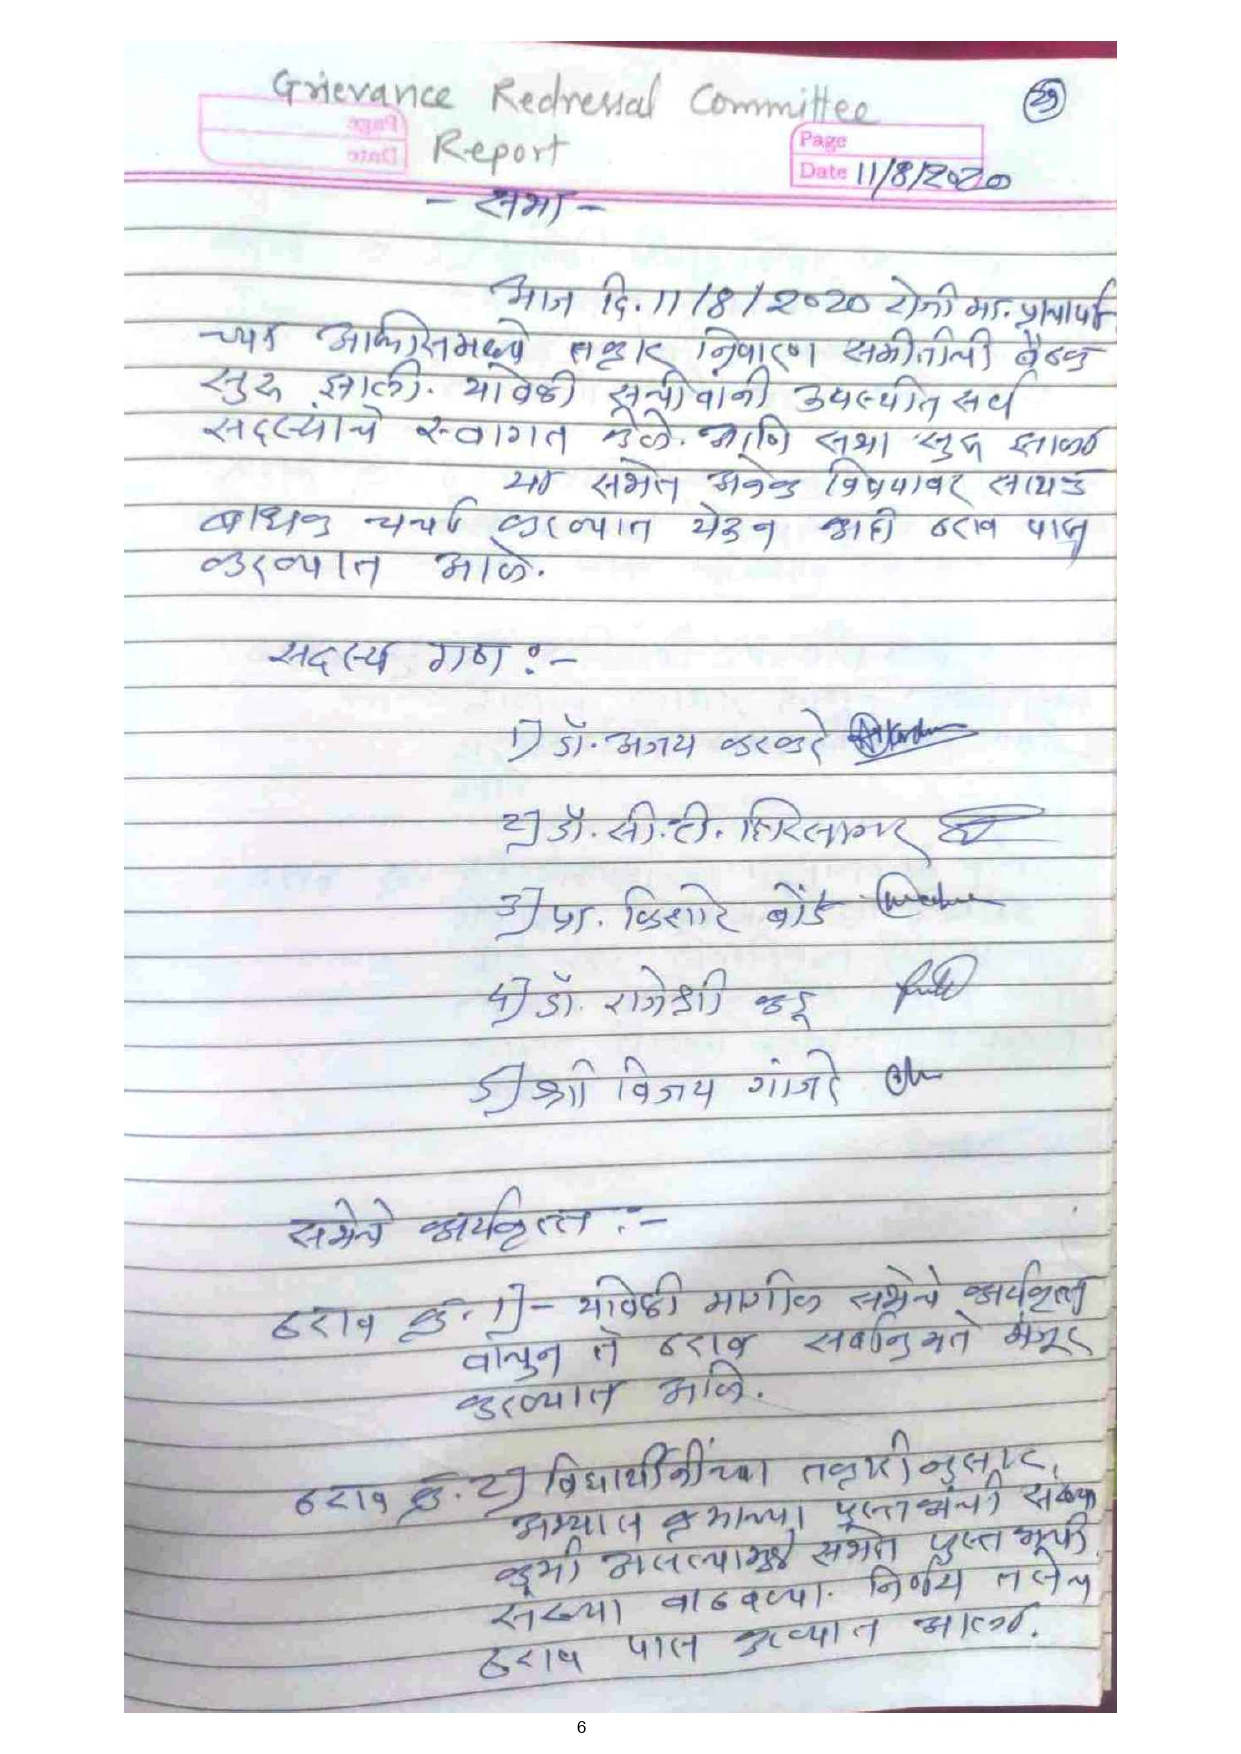 Grievance Redressal Committee
29
Report
Page
Date 11/8/2020
- सभा -
आज दि. 11/8/2020 रोजी मा. प्राचार्य
च्या आफीसमध्ये तक्रार निवारण समीतीची बैठक
सुरु झाली. यावेळी सचीवांनी उपस्थीत सर्व
सदस्यांचे स्वागत केले. आणि सभा सुरु झाली
या सभेत अनेक विषयावर साधक
बाधक चर्चा करण्यात येऊन काही ठराव पास
करण्यात आले.
सदस्य गण :-
1) डॉ. अजय करकरे
2) डॉ. सी. टी.
3) प्रा. किशोर बोंडे
4) डॉ. राजेश्री कडू
5) श्री विजय गांजरे
सभेचे कार्यवृत्त :-
ठराव क्र. 1) - यावेळी मागील सभेचे कार्यवृत्त
वाचुन ते ठराव सर्वानुमते मंजूर
करण्यात आले.
ठराव क्र. 2) विद्यार्थीनींच्या तक्रारीनुसार,
अभ्यास क्रमाच्या पुस्तकांची संख्या
कमी असल्यामुळे सभेत पुस्तकांची
संख्या वाढवण्या. निर्णय तसेच
ठराव पास करण्यात आला.
6